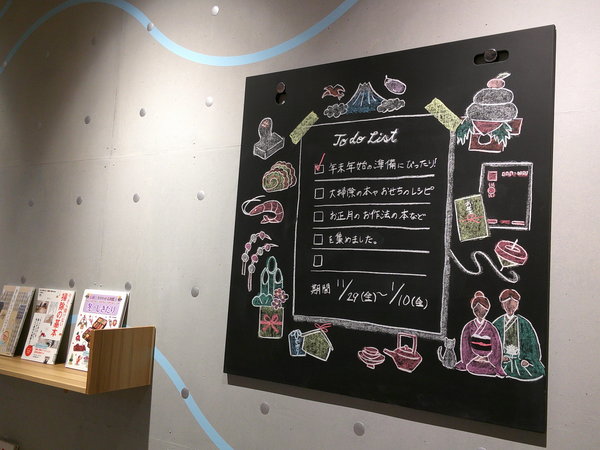 To do List
年末年始の準備にぴったり!
大掃除の本やおせちのレシピ
お正月のお作法の本など
を集めました。
期間 11/29(金)〜1/10(金)
掃除の基本
冬のしきたり